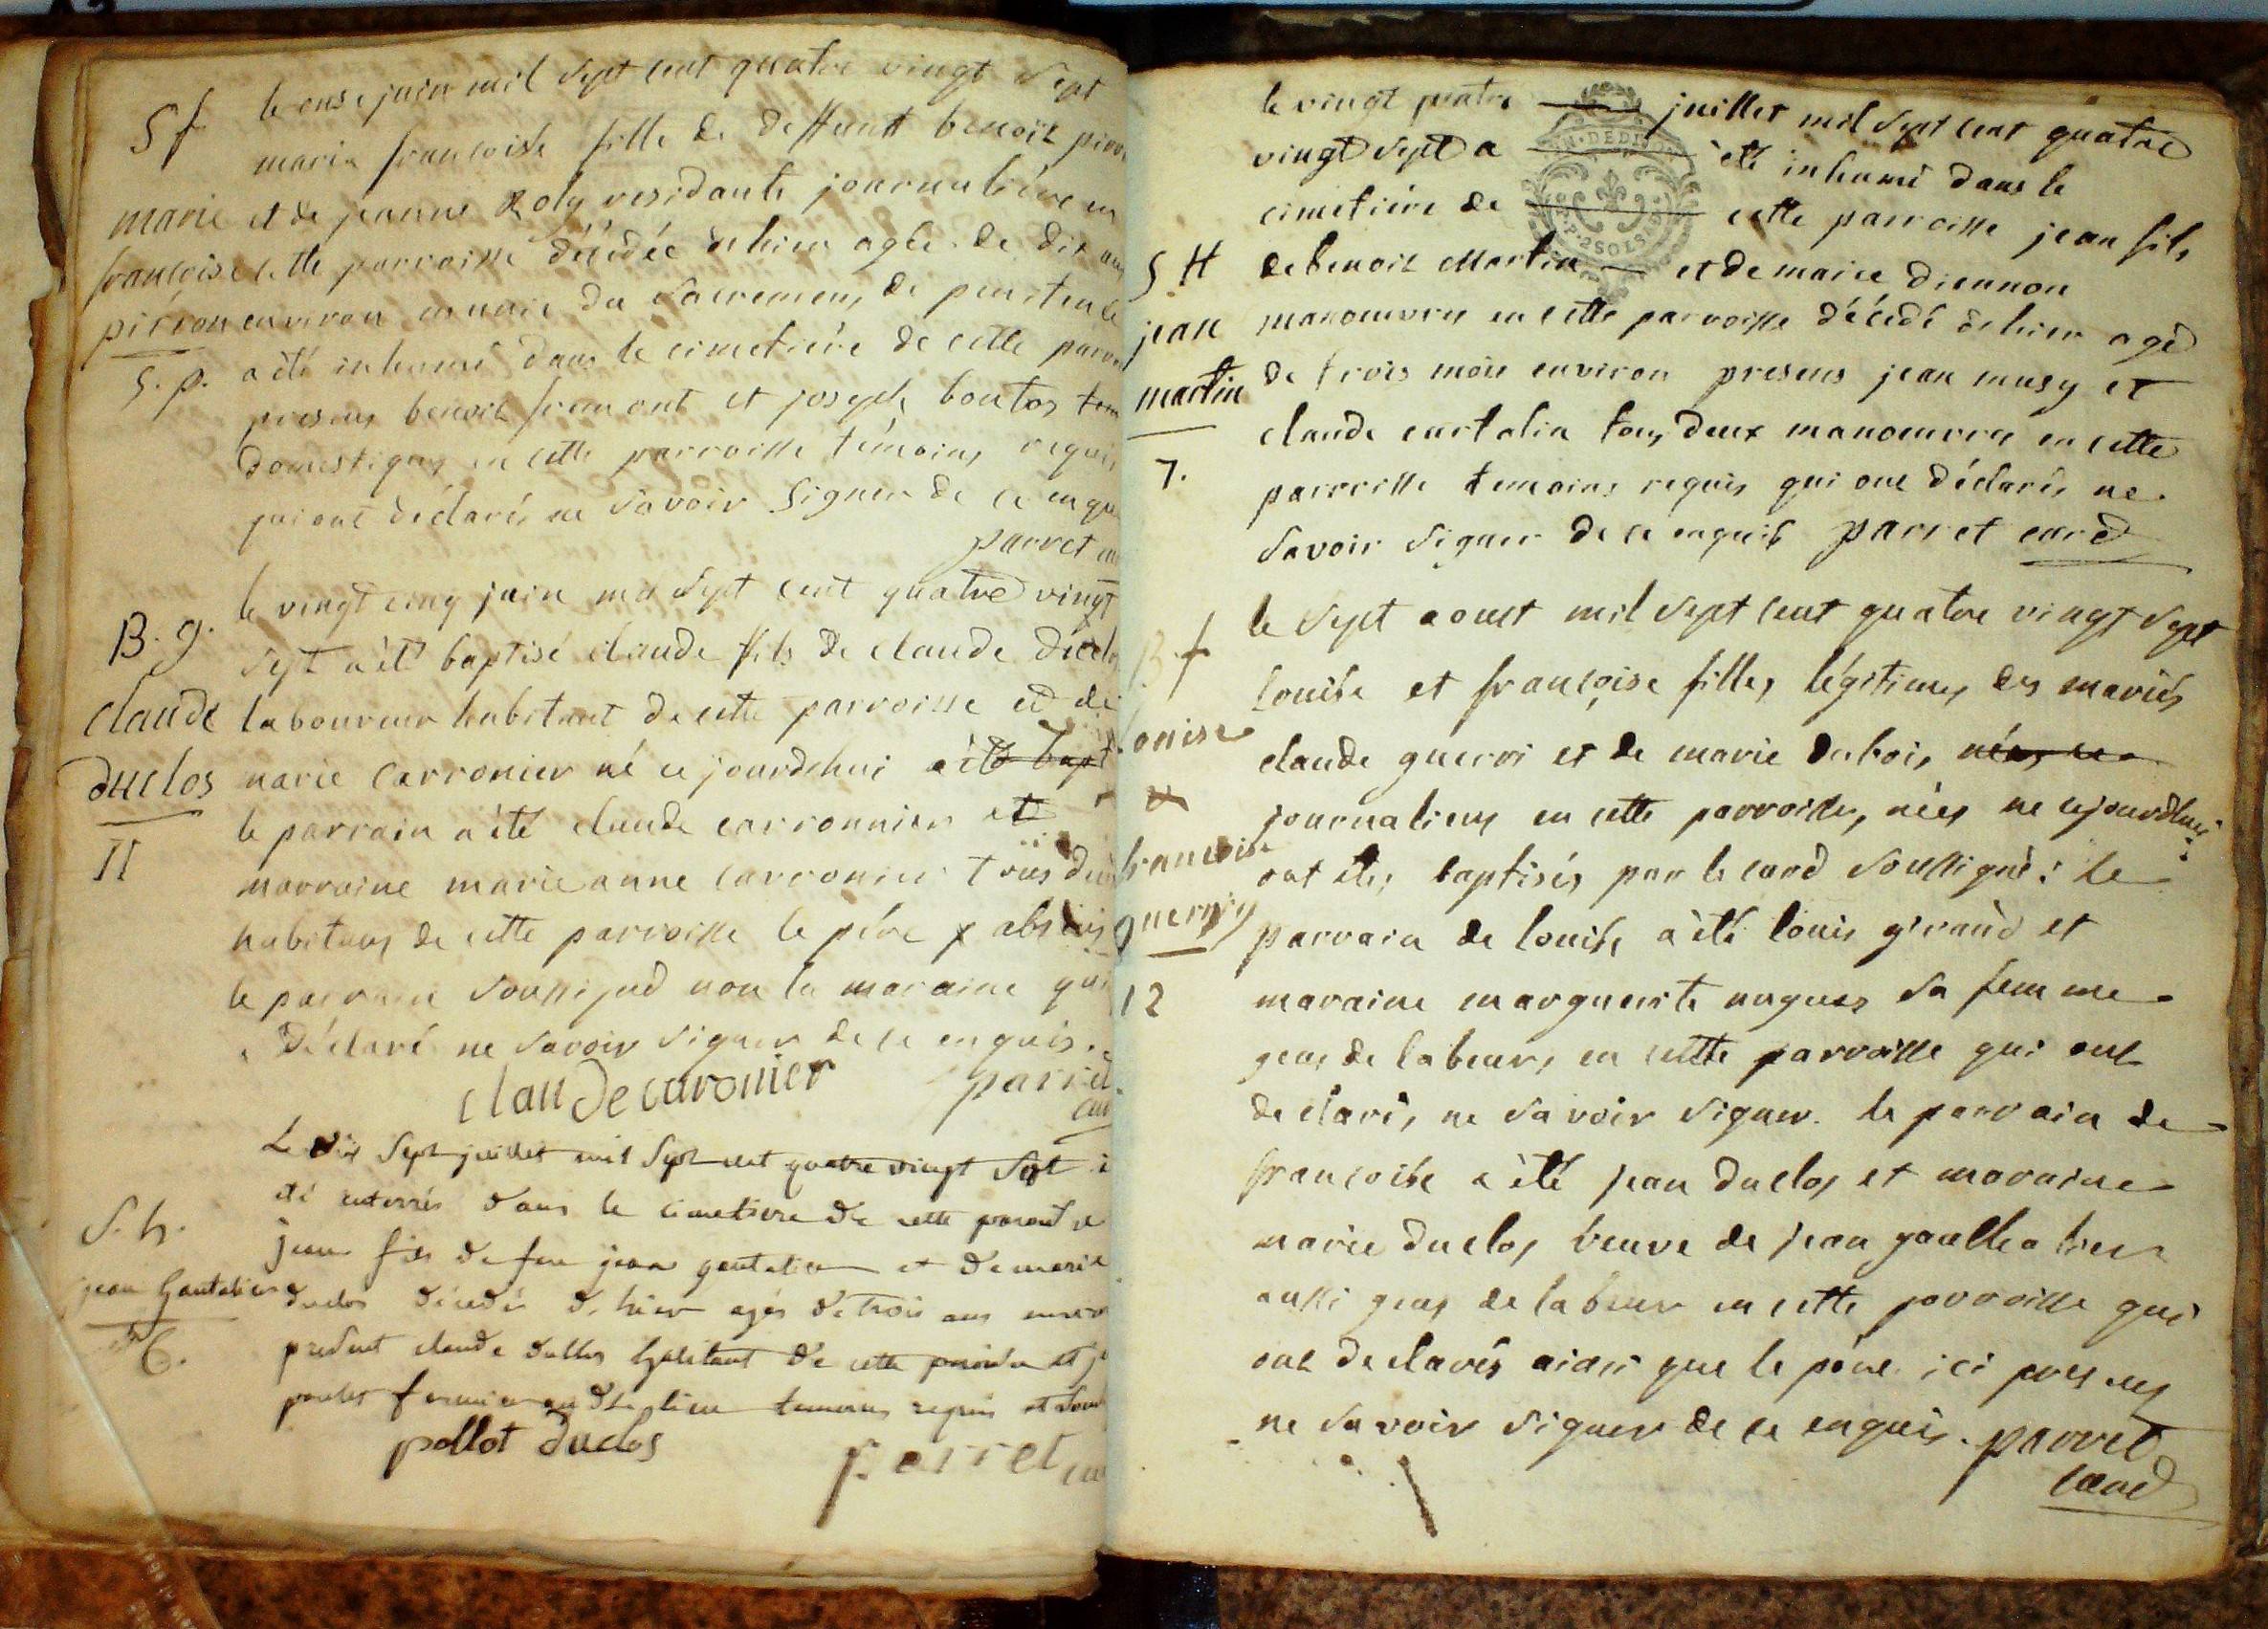 S f
marie
francoise
pirron
5. p.
le onse juin mil sept cent quatre vingt sept
marie francoise fille de deffunt benoit
et de jeanne residante journaliére en
cette parroisse décédée dehier agée de dix ans
environ munie du sacremens de penitence
a été inhumé dans le cimetière de cette
presens benoit fremont et joseph
domestiques en cette parroisse témoins requis
qui ont déclarés ne savoir signer de ce enquis
parret
B. g.
claude
duclos
II
le vingt cinq juin mil sept cent quatre vingt
sept a été baptisé claude fils de claude duclos
laboureur habitant de cette parroisse et de
marie carronier né ce jourdhui a été bapt
le parrain a été claude carronnier et
marraine marie anne carronier tous deux
habitans de cette parroisse le pére absens
le parrain soussigné non la maraine qui
a déclaré ne savoir signer de ce enquis.
claude caronier parret
curé
S. h.
jean gantelier
6.
Le dix sept juillet mil sept cent quatre vingt sept
été enterrés dans le cimetiere de cette
jean fils de feu jean et de marie
duclos décedés de hier agés de trois ans
present claude habitant de cette
fermier temoins requis
pollot duclos parret
S H
jean
martin
7.
le vingt quatre juillet mil sept cent quatre
vingt sept a été inhumé dans le
cimetière de cette parroisse jean fils
de benoit Martin et de marie diennon
manoeuvre en cette parroisse décédé dehier agé
de trois mois environ presens jean musy et
claude curtalin tous deux manoeuvre en cette
parroisse temoins requis qui ont déclarés ne
savoir signer de ce enquis parret curé
B f
louise
et
francoise
guerry
12
le sept aoust mil sept cent quatre vingt sept
louise et françoise filles légitimes des mariés
claude guerri et de marie dubois nées ce
journaliers en cette parroisse, nées ne cejourdhui
ont étés baptisés par le curé soussigné: le
parrain de louise a été louis giraud et
maraine marguerite nugues sa femme
gens de labeurs en cette parroisse qui ont
declarés ne savoir signer. le parrain de
francoise a été jean duclos et maraine
marie duclos veuve de jean
aussi gens de labeur en cette parroisse qui
ont declarés ainsi que le pére ici present
ne savoir signer de ce enquis. parret
curé